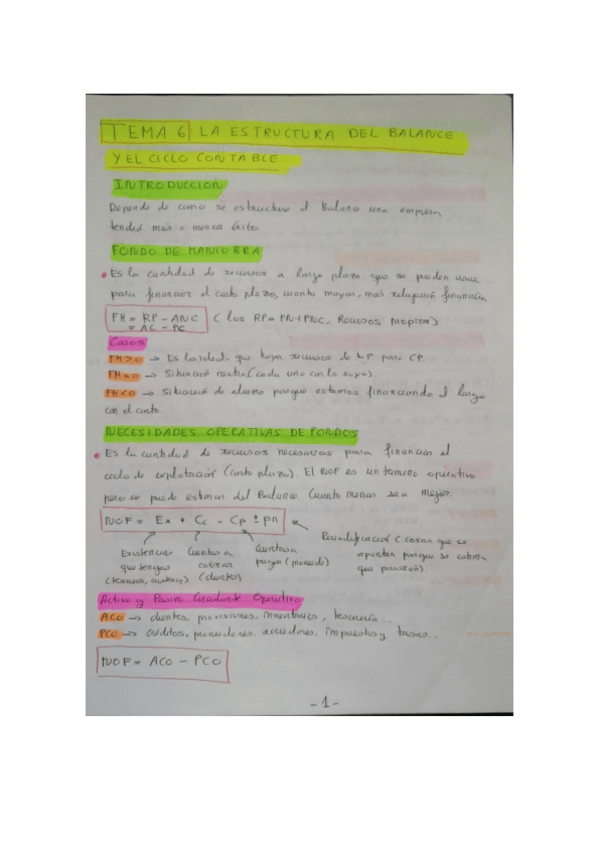 TEMA 6: LA ESTRUCTURA DEL BALANCE
Y EL CICLO CONTABLE
INTRODUCCIÓN
Depende de como se estructure el Balance una empresa
tendrá más o menos éxito.
FONDO DE MANIOBRA
• Es la cantidad de recursos a largo plazo que se pueden usar
para financiar el corto plazo, cuanto mayor, más relajación financiera
FM = RP - ANC (los RP = PN+PNC, Recursos propios)
= AC - PC
Casos
FM > 0 → Es lo ideal, que haya recursos de LP para CP.
FM = 0 → Situación neutra (cada uno con lo suyo).
FM < 0 → Situación de alarma porque estamos financiando el largo
con el corto.
NECESIDADES OPERATIVAS DE FONDOS
• Es la cantidad de recursos necesarios para financiar el
ciclo de explotación (corto plazo). El NOF es un término operativo
pero se puede estimar del Balance. Cuanto menos sea mejor.
NOF = Ex + Cc - Cp ± pn
Periodificación (cosas que se
apuntan porque se sabe
que pasarán).
Existencias
que tengas
Cuentas a
cobrar
(clientes)
Cuentas a
pagar (proveedo)
Activo y Pasivo Circulante Operativo
ACO → clientes, provisiones, inventarios, tesorería...
PCO → créditos, proveedores, acreedores, impuestos y tasas..
NOF = ACO - PCO
- 1 -